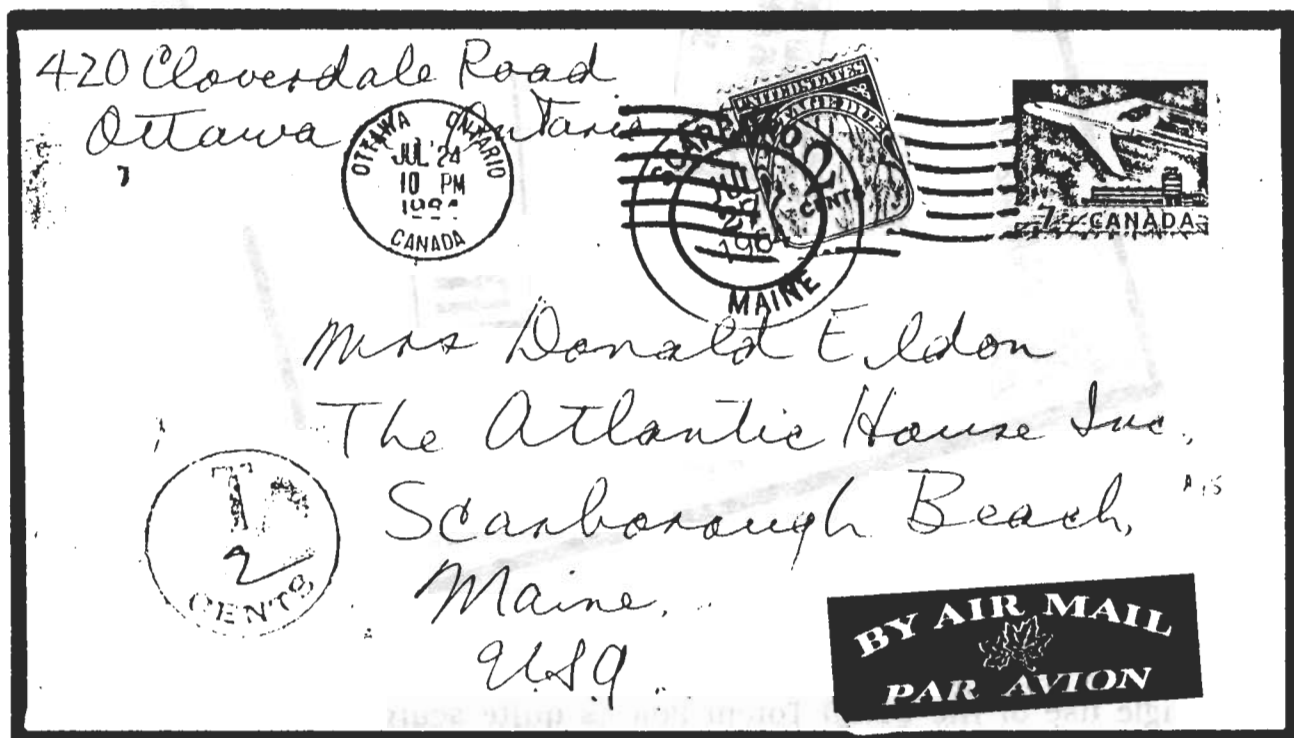 420 Cloverdale Road
Ottawa Ontario
7
OTTAWA ONTARIO
JUL 24
10 PM
CANADA
UNITED STATES
POSTAGE DUE
2
CENTS
MAINE
7 CANADA
Mrs Donald Eldon
The Atlantic House Inc.
Scarborough Beach,
Maine,
USA.
T
2
CENTS
BY AIR MAIL
PAR AVION